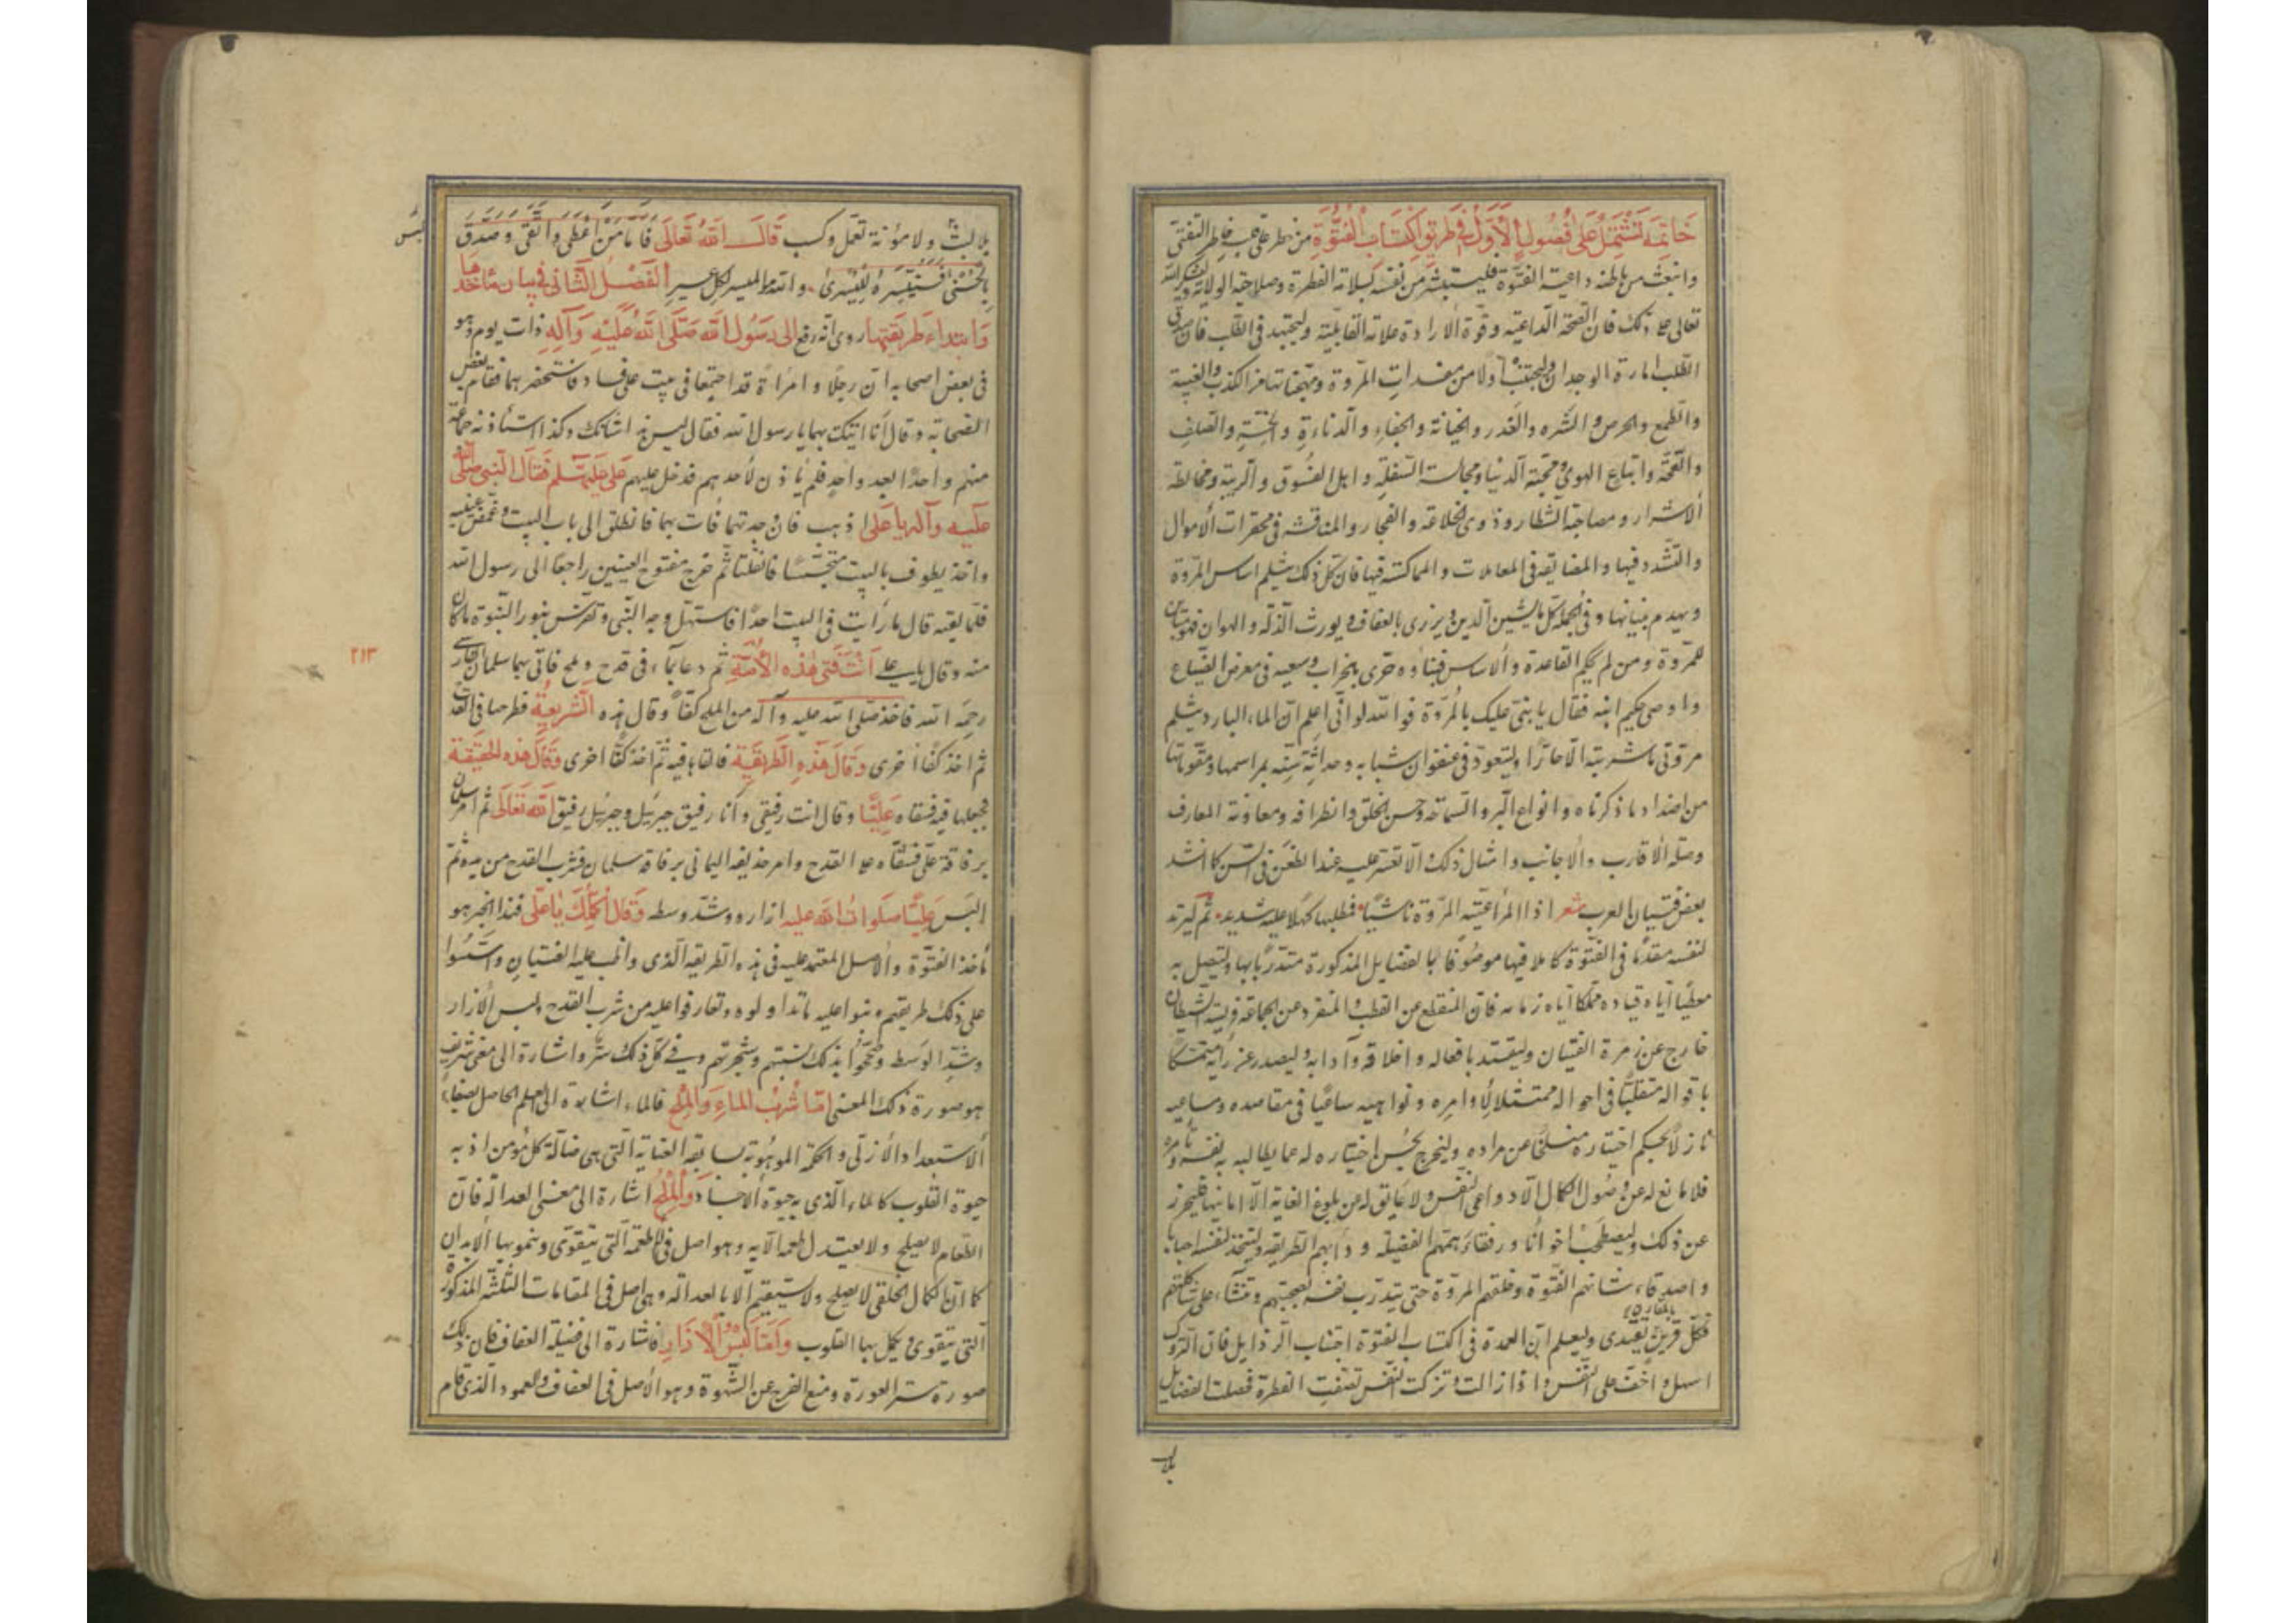 خاتمة تشتمل على فصول الأول في طريق اكتساب الفتوة من خطر على خاطر التفتي
وانبعث من باطنه داعية الفتوة فليستبشر من نفسه بسلامة الفطرة وصلاحية الولاية وليشكر الله
تعالى على ذلك فان الصحة الداعية وقوة الارادة علامة القابلية وليجتهد في الطلب فان صدق
الطلب امارة الوجدان وليجتنب اولا من مفسدات المروة ومهجناتها من الكذب والغيبة
والطمع والحرص والشره والغدر والخيانة والجفاء والدناءة والخسة والصلف
والقحة واتباع الهوى ومحبة الدنيا ومجالسة السفلة واهل الفسوق والريبة ومخالطة
الاشرار ومصاحبة الشطار وذوى الخلاعة والفجار والمناقشة في محقرات الاموال
والتشدد فيها والمضايقة في المعاملات والمماكسة فيها فان كل ذلك يثلم اساس المروة
ويهدم بنيانها وفي الجملة كل ما يشين الدين ويزرى بالعفاف ويورث الذلة والهوان فهو
للمروة ومن لم يحكم القاعدة والاساس فبناؤه حرى بالخراب وسعيه في معرض الضياع
واوصى حكيم ابنه فقال يا بنى عليك بالمروة فوالله لو انى اعلم ان الماء البارد يثلم
مروتى ما شربته الا حارا وليتعود في عنفوان شبابه وحداثة سنه بمراسمها ومقوماتها
من اضداد ما ذكرناه وانواع البر والسماحة وحسن الخلق والظرافة ومعاونة المعارف
وصلة الاقارب والاجانب وامثال ذلك والا تعسر عليه عند الطعن في السن كما انشد
بعض فتيان العرب شعر اذا المرء اعيته المروة ناشيا فمطلبها كهلا عليه شديد ثم ليرتد
لنفسه مقدما في الفتوة كاملا فيها موصوفا بالفضايل المذكورة متدربا بها وليتصل به
معطيا اياه قياده مملكا اياه زمامه فان المنقطع عن القطب والمنفرد عن الجماعة فريسة الشيطان
خارج عن زمرة الفتيان وليقتد بافعاله واخلاقه وآدابه وليصدر عن رأيه متمسكا
باقواله متقلبا في احواله ممتثلا لأوامره ونواهيه ساعيا في مقاصده ومساعيه
نازلا بحكم اختياره منسلخا عن مراده وليخرج بحسن اختياره له عما يطالبه به نفسه وتأمره
فلا مانع له عن وصول الكمال الا دواعى النفس ولا عايق له عن بلوغ الغاية الا امانيها فليحرز
عن ذلك وليصطحب اخوانا ورفقاء همتهم الفضيلة ودأبهم الطريقة وليتخذ لنفسه احبابا
واصدقاء شانهم الفتوة وخلقهم المروة حتى يتدرب نفسه بصحبتهم وتنشأ على شاكلتهم
فكل قرين بالمقارن يقتدى وليعلم ان العمدة في اكتساب الفتوة اجتناب الرذايل فان التروك
اسهل واخف على النفس واذا زالت وتزكت النفس تصفت الفطرة فحصلت الفضايل
بلا لبث
بلا لبث ولا مؤنة تعمل وكسب قال الله تعالى فاما من اعطى واتقى وصدق
بالحسنى فسنيسره لليسرى والله الميسر لكل عسير الفصل الثانى في بيان مأخذها
وابتداء طريقتها روى انه رفع الى رسول الله صلى الله عليه وآله ذات يوم وهو
في بعض اصحابه ان رجلا وامرأة قد اجتمعا في بيت على فساد فاستحضر بهما فقام بعض
الصحابة وقال أنا اتيتك بهما يا رسول الله فقال ليس من شانك وكذا استأذنه جماعة
منهم واحدا بعد واحد فلم يأذن لأحدهم فدخل عليهم على عليه السلم فقال النبي صلى الله
عليه وآله يا على اذهب فان وجدتهما فأت بهما فانطلق الى باب البيت وغمض عينيه
واخذ يطوف بالبيت متجسسا فانفلتا ثم خرج مفتوح العينين راجعا الى رسول الله
فلما لقيه قال ما رأيت في البيت احدا فاستهل وجه النبى وتفرس بنور النبوة ما كان
٢١٣
منه وقال يا على أنت فتى هذه الأمة ثم دعا بماء في قدح وملح فاتى بهما سلمان الفارسى
رحمه الله فاخذ صلى الله عليه وآله من الملح كفا وقال هذه الشريعة فطرحها في القدح
ثم اخذ كفا أخرى وقال هذه الطريقة فالقاها فيه ثم اخذ كفا اخرى وقال هذه الحقيقة
فجعلها فيه فسقاه عليا وقال انت رفيقى وأنا رفيق جبرئيل وجبرئيل رفيق الله تعالى ثم امر سلمان
برفاقة على فسقاه على القدح وامر حذيفة اليمانى برفاقة سلمان فشرب القدح من يده ثم
البس عليا صلوات الله عليه ازاره وشد وسطه وقال أكملك يا على فهذا الخبر هو
مأخذ الفتوة والأصل المعتمد عليه في هذه الطريقة الذى واظب عليه الفتيان واسسوا
على ذلك طريقتهم وبنوا عليه ما تداولوه وتعارفوا عليه من شرب القدح ولبس الازار
وشد الوسط وصححوا بذلك نسبتهم وشجرتهم وفي كل ذلك سر واشارة الى معنى شريف
هو صورة ذلك المعنى اما شرب الماء والملح فالماء اشارة الى العلم الحاصل بصفاء
الاستعداد الازلى والحكمة الموهوبة بسابقة العناية التى هى ضالة كل مؤمن اذ به
حيوة القلوب كالماء الذى به حيوة الاجساد والملح اشارة الى معنى العدالة فان
الطعام لا يصلح ولا يعتدل طعمه الا به وهو اصل في الاطعمة التى يتقوى وينمو بها الابدان
كما أن الكمال الخلقى لا يصلح ولا يستقيم الا بالعدالة وهى اصل في المقامات الثلثة المذكورة
التى يتقوى ويكمل بها القلوب واما لبس الازار فاشارة الى فضيلة العفاف فان ذلك
صورة ستر العورة ومنع الفرج عن الشهوة وهو الأصل في العفاف والعمود الذى قام